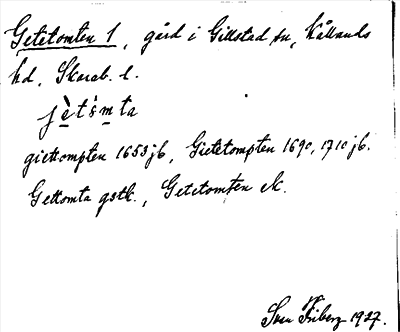 Getetomten 1, gård i Gillstad sn, Kållands
hd, Skarab. l.
jètsmta
giettompten 1653 jb, Gietetompten 1690, 1710 jb.
Gettomta gstk., Getetomten ek.
Sven Friberg 1927.